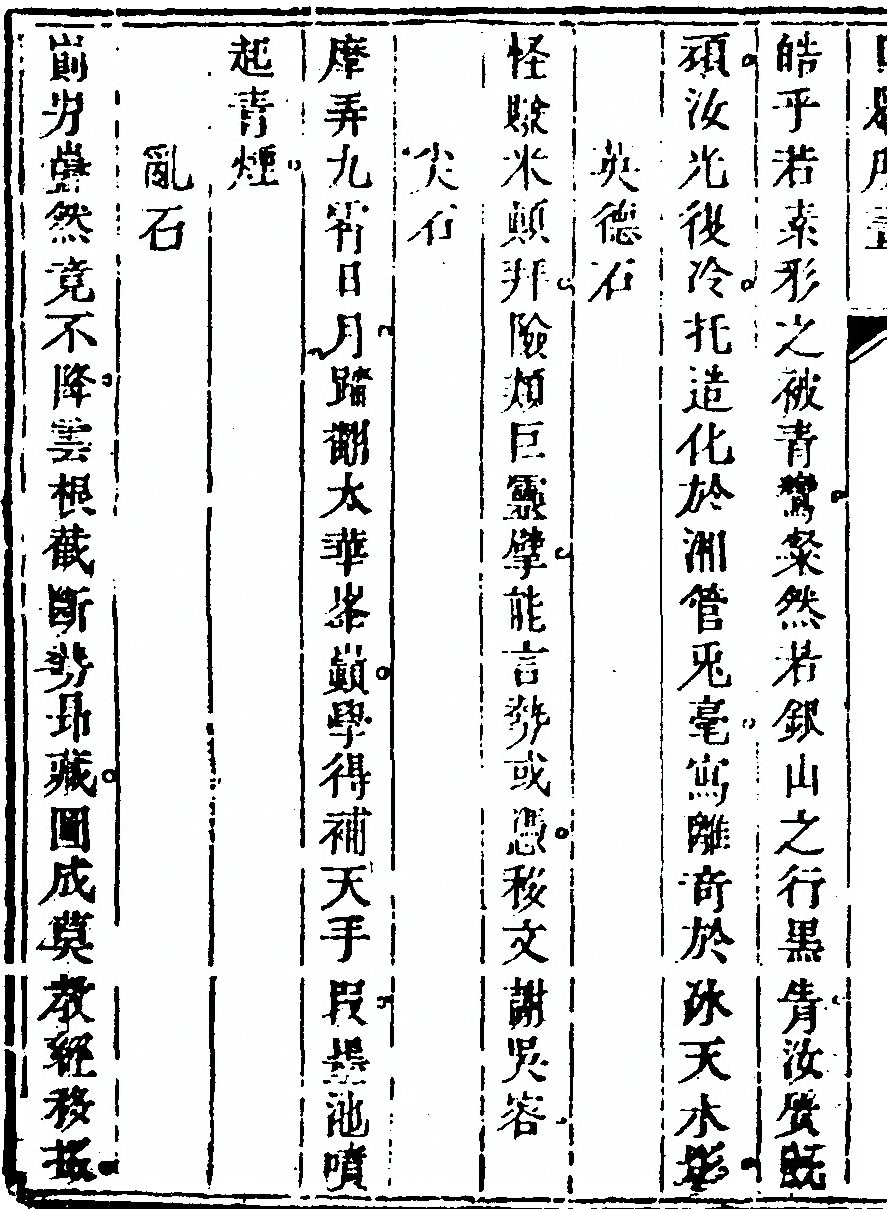 皓乎若素形之被青鸞粲然若銀山之行黑眚汝質既
頑汝光復冷托造化於湘管兎毫寫離奇於氷天水影
英德石
怪米顛拜險類巨靈擘能言勢或憑移文謝吳客
尖石
摩弄九霄日月踏翻太華峯巔學得補天手段墨池噴
起青煙
亂石
崱屴然竟不降雲根截斷勢昂藏圖成莫教輕移